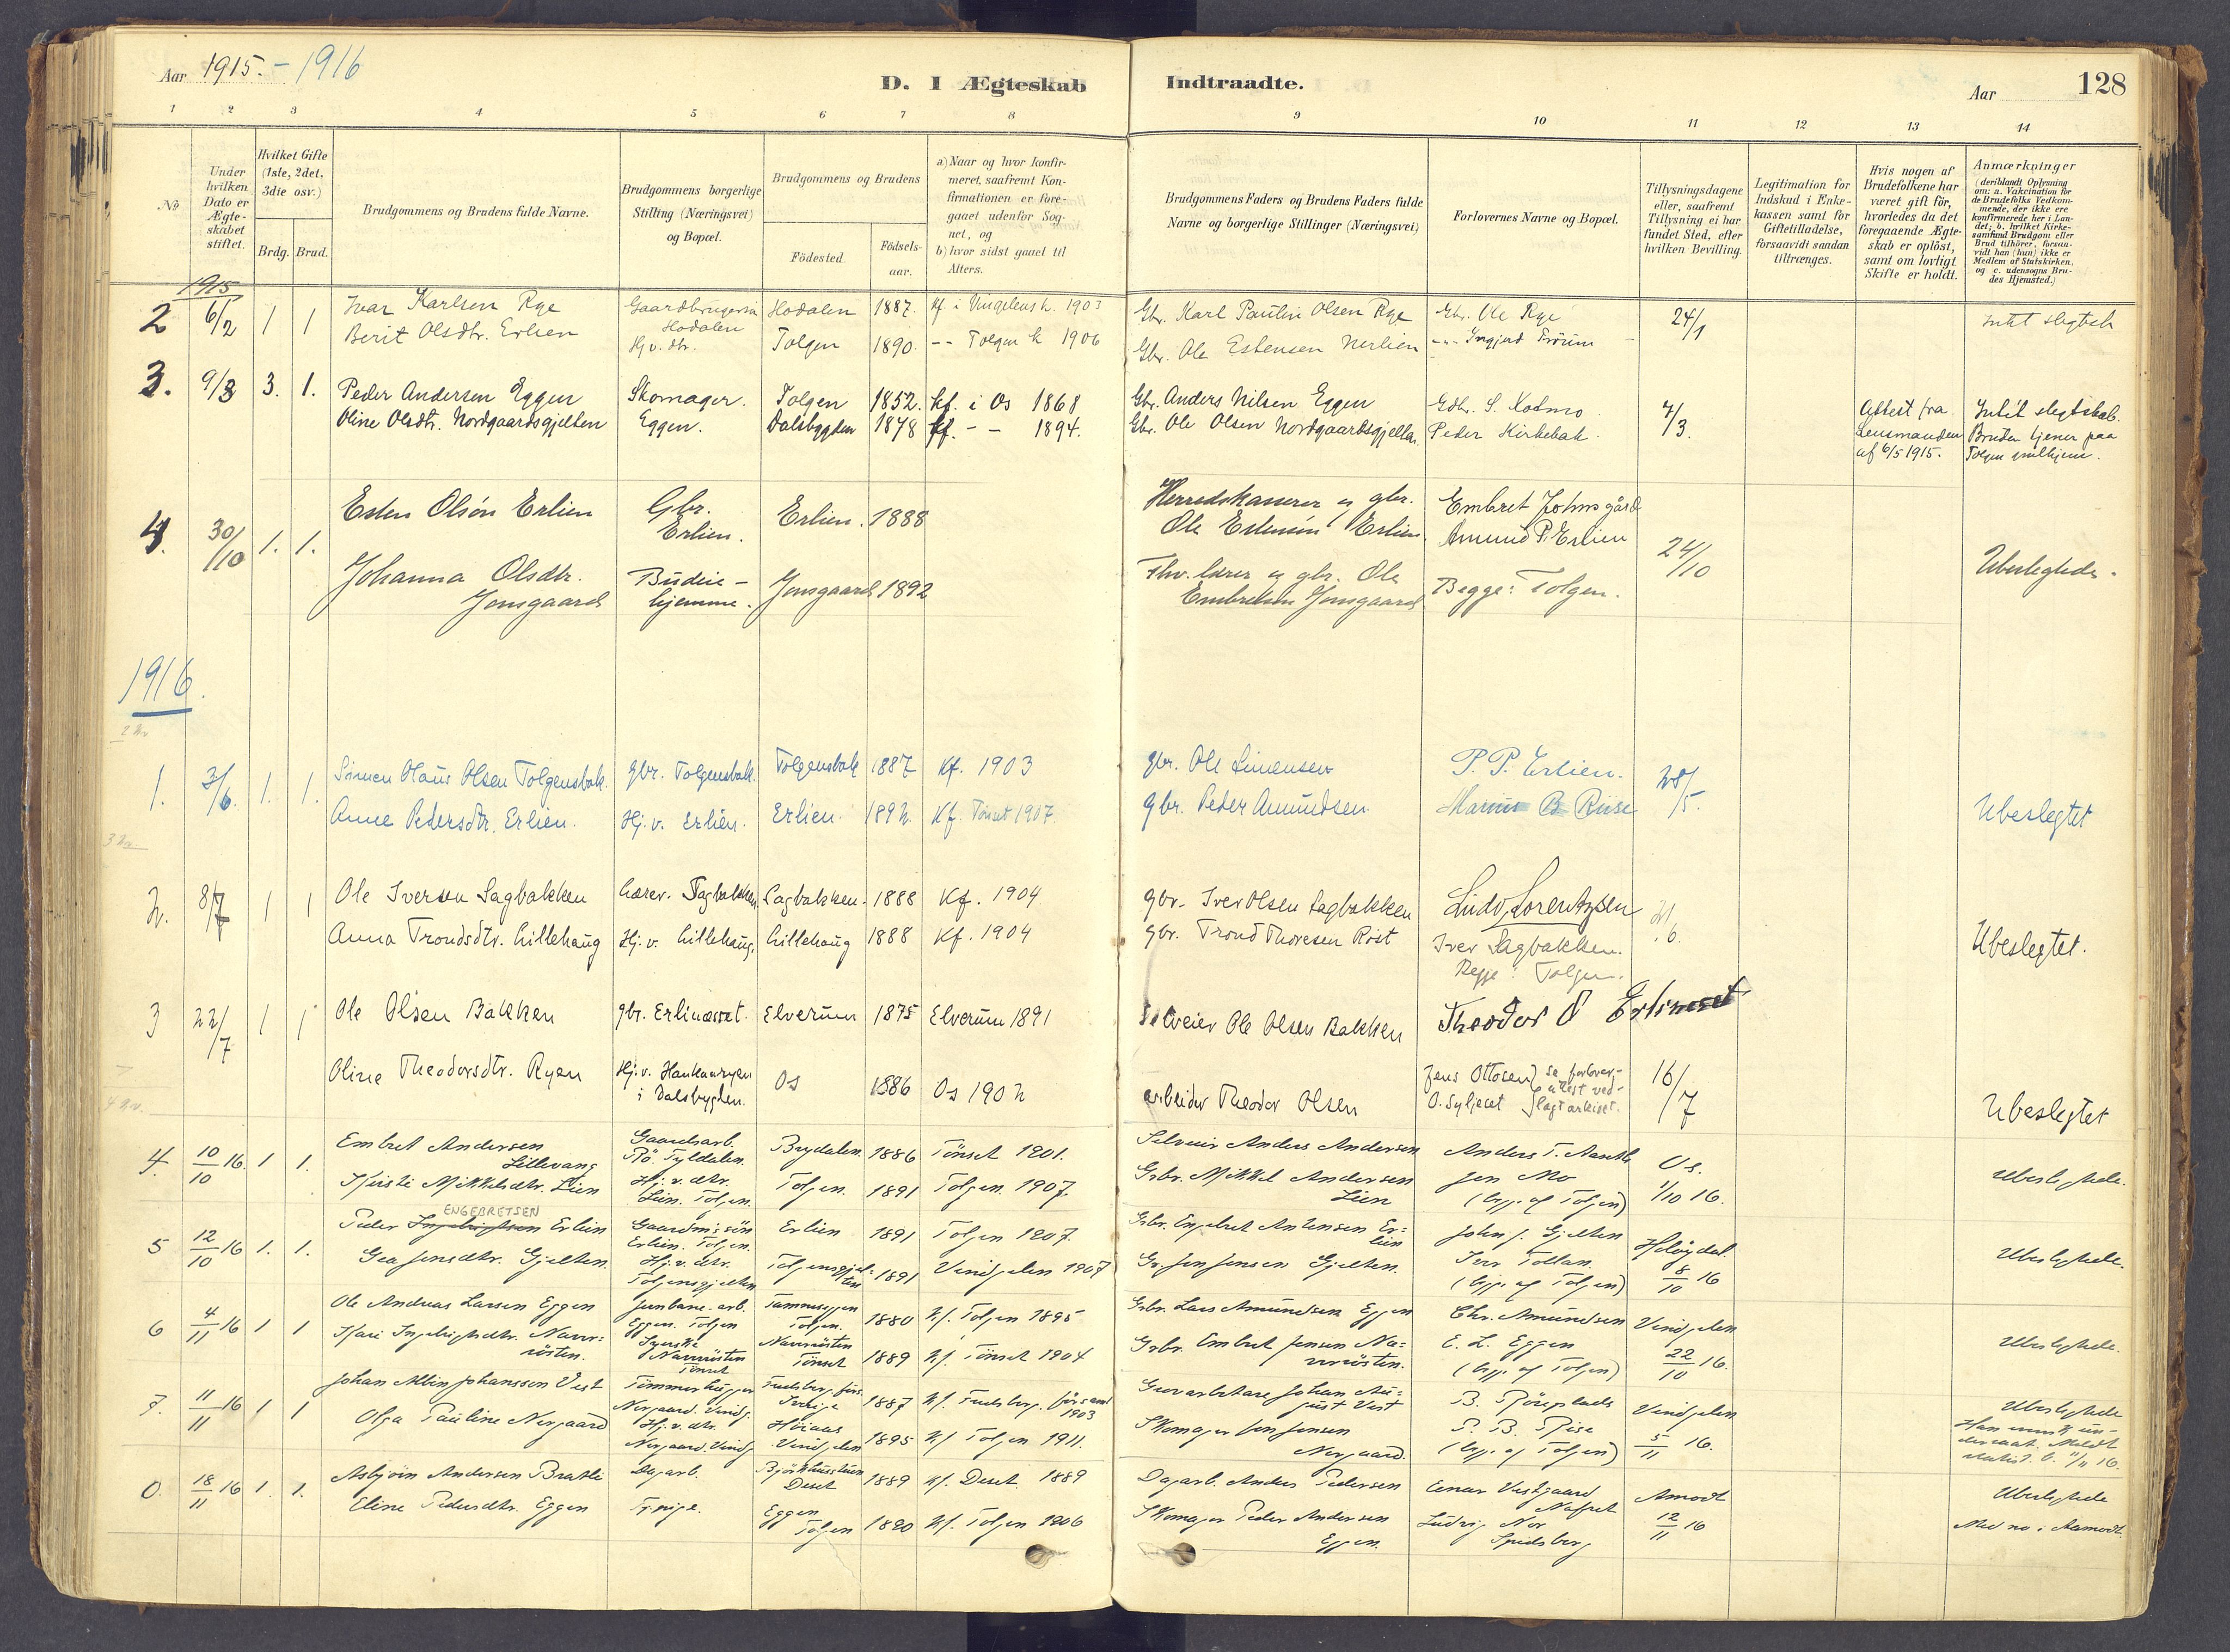 Aar 1915. - 1916
D. I Ægteskab Indtraadte.
Aar 128
1 2 3 4 5 6 7 8 9 10 11 12 13 14
No
Under hvilken Dato er Ægteskabet stiftet.
Hvilket Gifte (1ste, 2det, 3die osv.)
Brdg. Brud.
Brudgommens og Brudens fulde Navne.
Brudgommens borgerlige Stilling (Næringsvei) og Bopæl.
Brudgommens og Brudens
Födested.
Födsels-aar.
a) Naar og hvor konfirmeret, saafremt Konfirmationen er foregaaet udenfor Sognet, og
b) hvor sidst gaaet til Alters.
Brudgommens Faders og Brudens Faders fulde Navne og borgerlige Stillinger (Næringsvei)
Forlovernes Navne og Bopæl.
Tillysningsdagene eller, saafremt Tillysning ei har fundet Sted, efter hvilken Bevilling.
Legitimation for Indskud i Enkekassen samt for Giftetilladelse, forsaavidt saadan tiltrænges.
Hvis nogen af Brudefolkene har været gift för, hvorledes da det foregaaende Ægteskab er oplöst, samt om lovligt Skifte er holdt.
Anmærkninger (deriblandt Oplysning om: a. Vakcination for de Brudefolks Vedkommende, der ikke ere konfirmerede her i Landet; b. hvilket Kirkesamfund Brudgom eller Brud tilhörer, forsaavidt han (hun) ikke er Medlem af Statskirken, og c. udensogns Brudes Hjemsted.)
1915
2 6/2 1 1 Ivar Karlsen Rye Hodalen 1887. kf. i Vingelens k. 1903 Gbr. Karl Paulin Olsen Rye Gbr. Ole Rye 24/1 Intet slegtsk
Hodalen
Berit Olsdtr. Erlien Hj.v. dtr. Tolgen 1890. -- Tolgen k 1906 Gbr. Ole Estensen Nerlien
3. 9/3 3. 1. Peder Andersen Eggen Skomager. Tolgen 1852. kf. i Os 1868 Gbr. Anders Nilsen Eggen 7/3. Attest fra Intet slegtskab.
Oline Olsdtr. Nordgaardsgjelten Eggen. Dalsbygden 1878 kf. - - 1894. Gbr. Ole Olsen Nordgaardsgjelten. Peder Kirkebak. Lensmanden Bruden tjener paa
af 6/5 1915. Tolgen
4. 30/10 1. 1. Esten Olsön Erlien Gbr. Erlien. Erlien. 1888 Herredskasserer og gbr. Embret Johnsgård
Ole Estensen Erlien Amund P. Erlien 24/10 Ubeslegtede.
Johanna Olsdtr. Jonsgaard Budeie - hjemme. Jonsgaard 1892 Fhv. lærer og gbr. Ole
Embretsen Jonsgaard Begge: Tolgen.
1916.
1. 3/6. 1. 1. Simen Olaus Olsen Tolgensbak. gbr. Tolgensbak. Tolgensbak 1887 kf. 1903 gbr. Ole Simensen P. P. Erlien. 28/5.
Anne Pedersdtr. Erlien. Hj.v. Erlien. Erlien. 1892. Kf. Tönset 1907. gbr. Peder Amundsen. Marius B Riise Ubeslegtet
2. 8/7 1 1 Ole Iversen Sagbakken Sagbakken. Sagbakken. 1888 Kf. 1904 gbr. Iver Olsen Sagbakken Ludv. Lorentzen
Anna Trondsdtr. Lillehaug Hj.v. Lillehaug. Lillehaug 1888 Kf. 1904 gbr. Trond Thoresen Röst Iver Sagbakken. Ubeslegtet.
Begge: Tolgen.
3 22/7 1 1 Ole Olsen Bakken gbr. Erlinæsset. Elverum 1875 Elverum 1891 Selveier Ole Olsen Bakken Theodor O Erlineset
Oline Theodorsdtr. Ryen Hj.v. i Dalsbygden. Os 1886 Os 1902 arbeider Theodor Olsen Jens Ottosen O. Syljeset se forlover-attest ved-lagt arkivet. 16/7 Ubeslegtet
4. 10/10 16. 1 1. Embret Andersen Lillevang Gaardsarb. Rö. Tyldalen. Brydalen. 1886 Tönset 1901. Selveier Anders Andersen Os.
Kirsti Mikkelsdtr. Lien Hj.v. dtr. Lien. Tolgen. Tolgen. 1891 Tolgen 1907. Grbr. Mikkel Andersen Lien Jon Mo (bgge af Tolgen) 1/10 16. Ubeslegtede.
5 12/10 16 1. 1. Peder ENGEBRETSEN Erlien Gaardmissön Erlien. Tolgen. Erlien 1891 Tolgen 1907. Grbr. Engebret Antonsen Erlien John J. Gjelten
Gea Jensdtr. Gjelten. Hj.v. dtr. Tolgensgjelten Tolgensgjelten 1891 Vingelen 1907 Gr. Jon Jensen Gjelten. Iver Tollan. (bgge af Tolgen) 8/10 16 Ubeslegtede.
6 4/11 16 1 1 Ole Andreas Larsen Eggen Jernbane-arb. Eggen. Tolgen Tolgen. 1880 Kf. Tolgen 1895 Grbr. Lars Amundsen Eggen Chr. Amundsen Vingelen
Kari Ingebrigtsdtr. Narrösten. Syerske Tönset Tönset 1889 Kf. Tönset 1904 Grbr. Embret Jensen E. L. Eggen (bgge af Tolgen) 22/10 16. Ubeslegtede.
7. 11/11 16 1 1 Johan Albin Johansson Vest Tömmerhugger Nergaard. Vinglj. Sverige 1887 1903 Gruvarbetare Johan August Vest Vingelen Ubeslegtede
Olga Pauline Nergaard Hj.v. dtr. Nergaard. Vingelen 1895 Kf Tolgen 1911. Skomager Jon Jensen Nergaard. P. B. Riise (bgge af Tolgen) 5/11 16.
0. 18/11 16 1. 1. Asbjörn Andersen Bratli Dagarb. Deset 1889 Kf. Deset 1889 Dagarb. Anders Pedersen Einar Vestgaard Amodt Ubeslegtede
Eline Pedersdtr. Eggen Tj.pige. Eggen Tolgen 1890 Kf. Tolgen 1906 Skomager Peder Andersen Eggen. Ludvig Nor 12/11 16